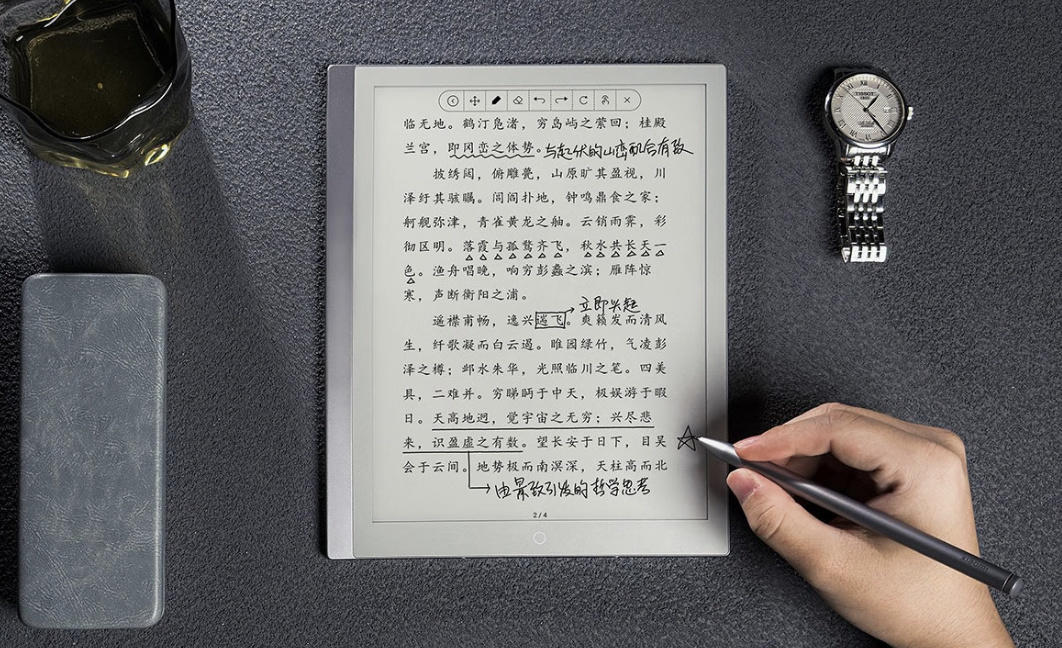 临无地。鹤汀凫渚，穷岛屿之萦回；桂殿
兰宫，即冈峦之体势。与起伏的山峦配合有致
披绣闼，俯雕甍，山原旷其盈视，川
泽纡其骇瞩。闾阎扑地，钟鸣鼎食之家；
舸舰弥津，青雀黄龙之舳。云销雨霁，彩
彻区明。落霞与孤鹜齐飞，秋水共长天一
色。渔舟唱晚，响穷彭蠡之滨；雁阵惊
寒，声断衡阳之浦。
立即兴起
遥襟甫畅，逸兴遄飞。爽籁发而清风
生，纤歌凝而白云遏。睢园绿竹，气凌彭
泽之樽；邺水朱华，光照临川之笔。四美
具，二难并。穷睇眄于中天，极娱游于暇
日。天高地迥，觉宇宙之无穷；兴尽悲
来，识盈虚之有数。望长安于日下，目吴
会于云间。地势极而南溟深，天柱高而北
由景致引发的哲学思考
2/4
TISSOT